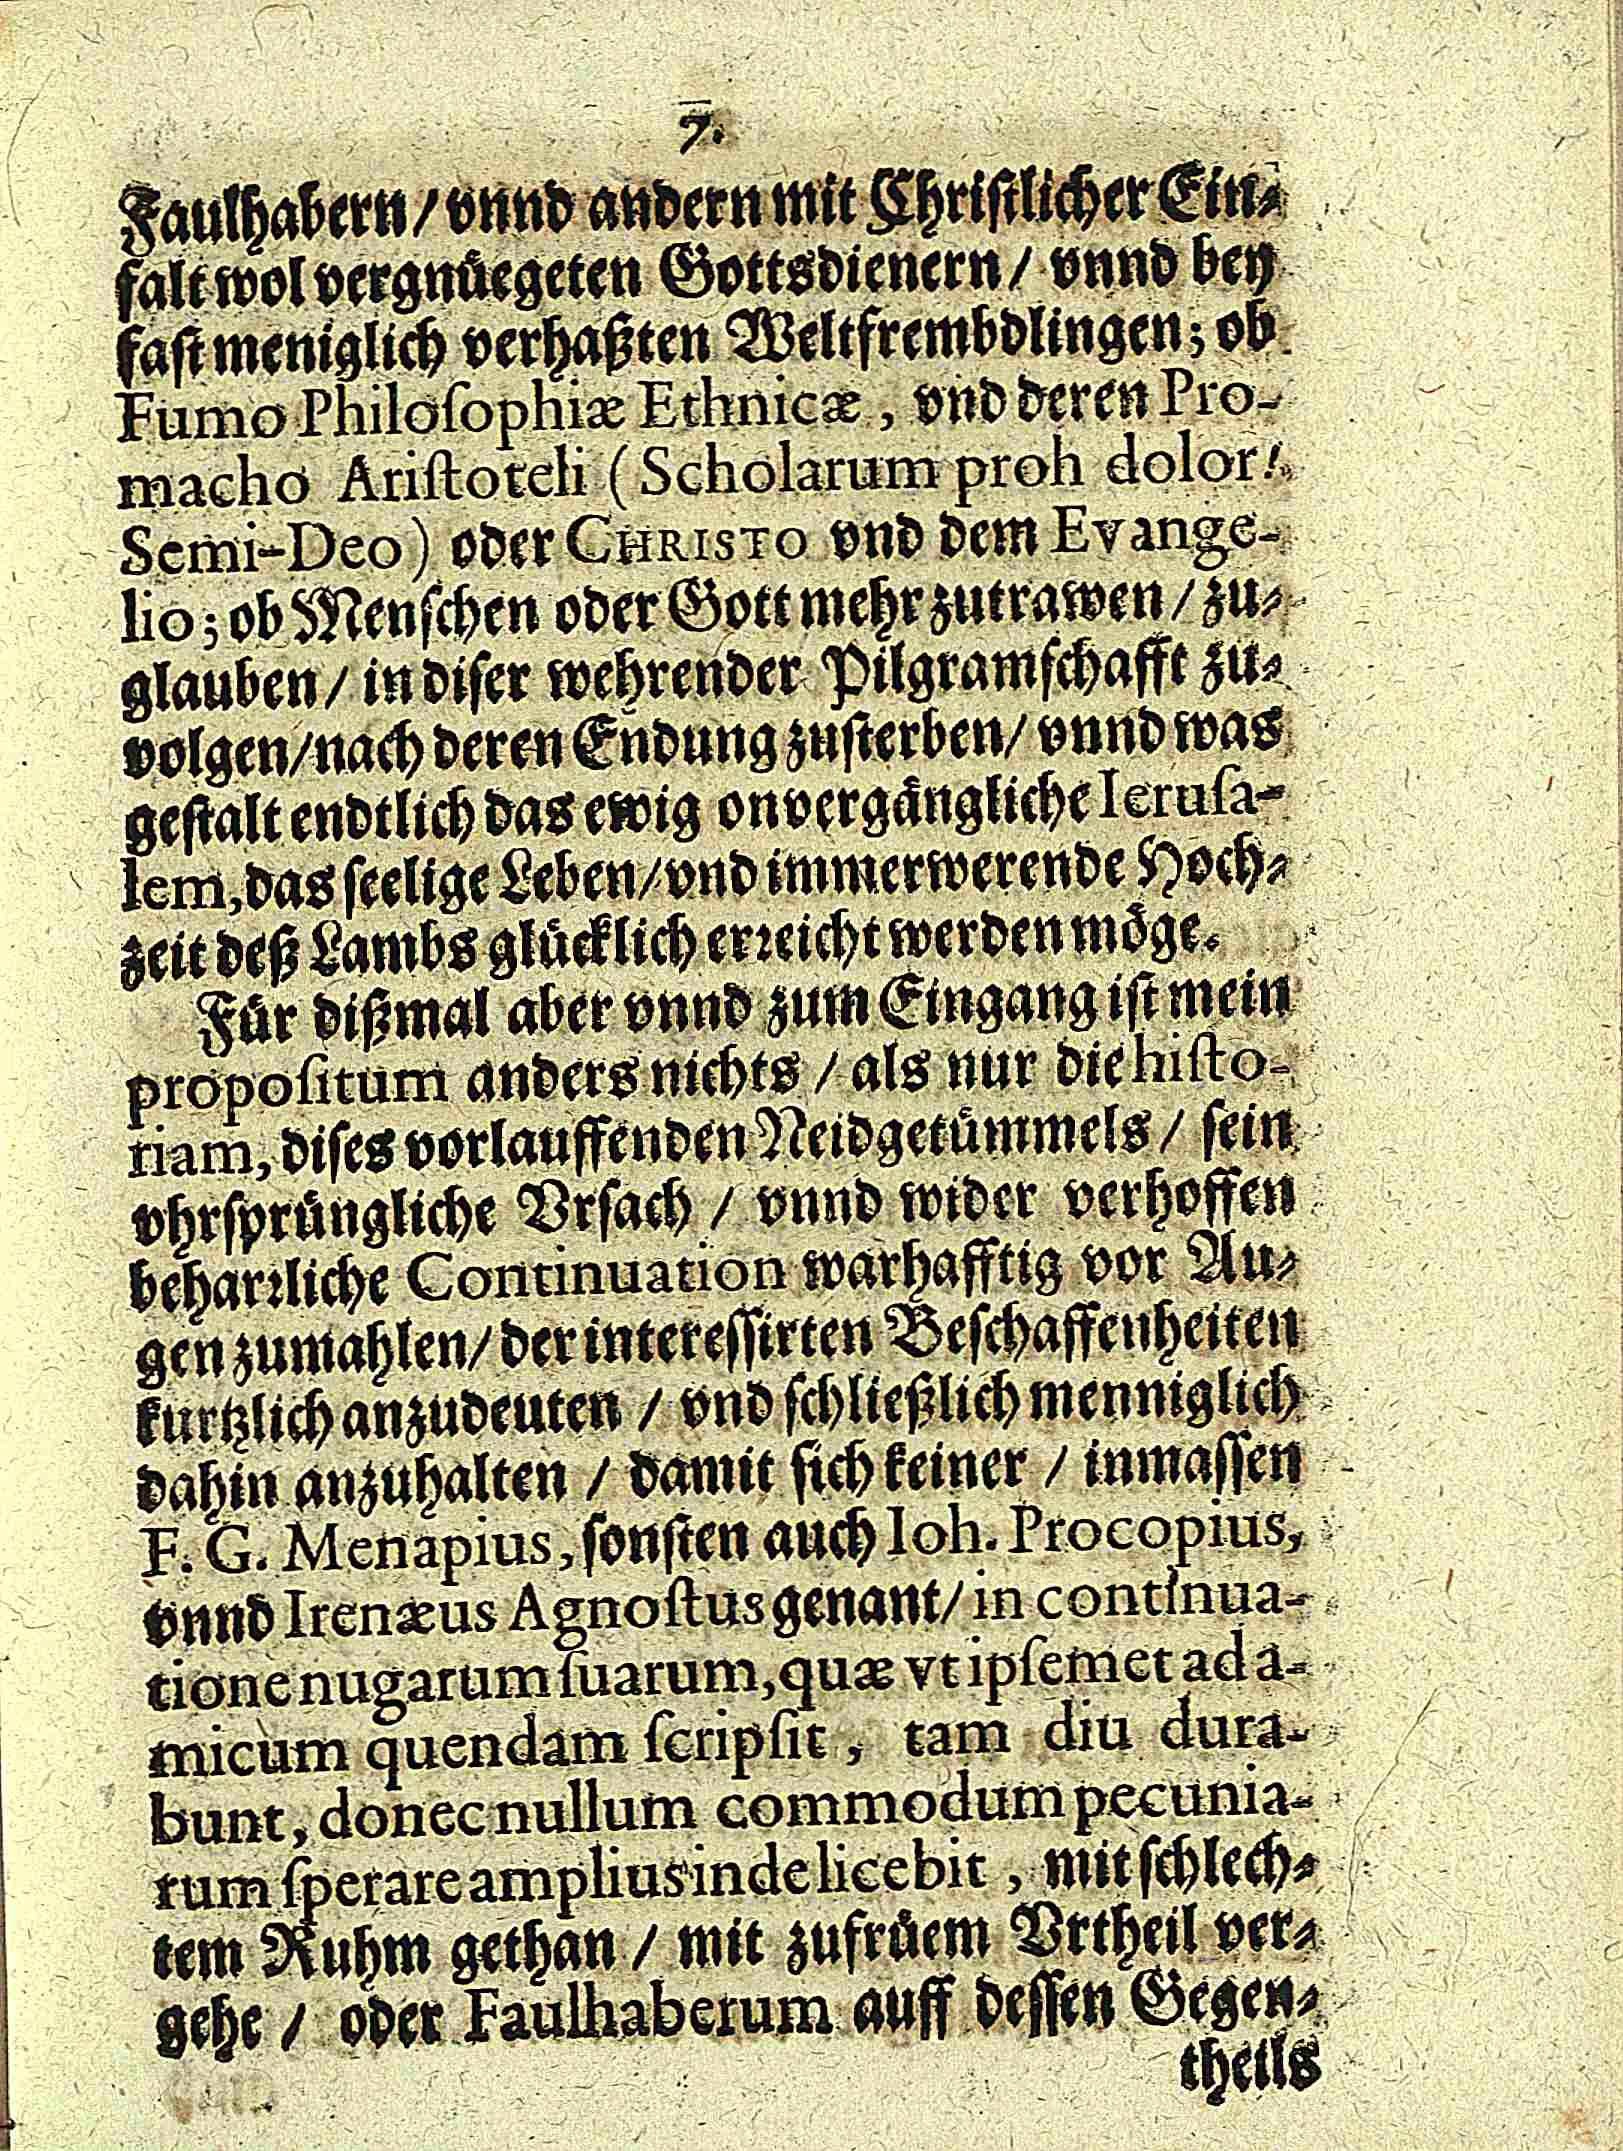 7.
Faulhabern / vnnd andern mit Christlicher Ein⸗
falt wol vergnüegeten Gottsdienern / vnnd bey
fast meniglich verhaßten Weltfrembdlingen; ob
Fumo Philoſophiæ Ethnicæ, vnd deren Pro-
macho Ariſtoteli (Scholarum proh dolor!
Semi-Deo) oder CHRISTO vnd dem Evange-
lio; ob Menſchen oder Gott mehr zutrawen / zu⸗
glauben / in diſer wehrender Pilgramſchafft zu⸗
volgen / nach deren Endung zuſterben / vnnd was
geſtalt endtlich das ewig onvergängliche Ieruſa-
lem, das ſeelige Leben / vnd immerwerende Hoch⸗
zeit deß Lambs glücklich erꝛeicht werden möge.
Für dißmal aber vnnd zum Eingang iſt mein
propoſitum anders nichts / als nur die hiſto-
riam, diſes vorlauffenden Neidgetümmels / ſein
vhrſprüngliche Vrſach / vnnd wider verhoffen
beharꝛliche Continuation warhafftig vor Au⸗
gen zumahlen / der intereſſirten Beſchaffenheiten
kurtzlich anzudeuten / vnd ſchließlich menniglich
dahin anzuhalten / damit ſich keiner / inmaſſen
F. G. Menapius, ſonſten auch Ioh. Procopius,
vnnd Irenæus Agnoſtus genant / in continua-
tione nugarum ſuarum, quæ vt ipſemet ad a-
micum quendam ſcripſit, tam diu dura-
bunt, donec nullum commodum pecunia-
rum ſperare amplius inde licebit, mit ſchlech⸗
tem Ruhm gethan / mit zufrüem Vrtheil ver⸗
gehe / oder Faulhaberum auff deſſen Gegen⸗
theils